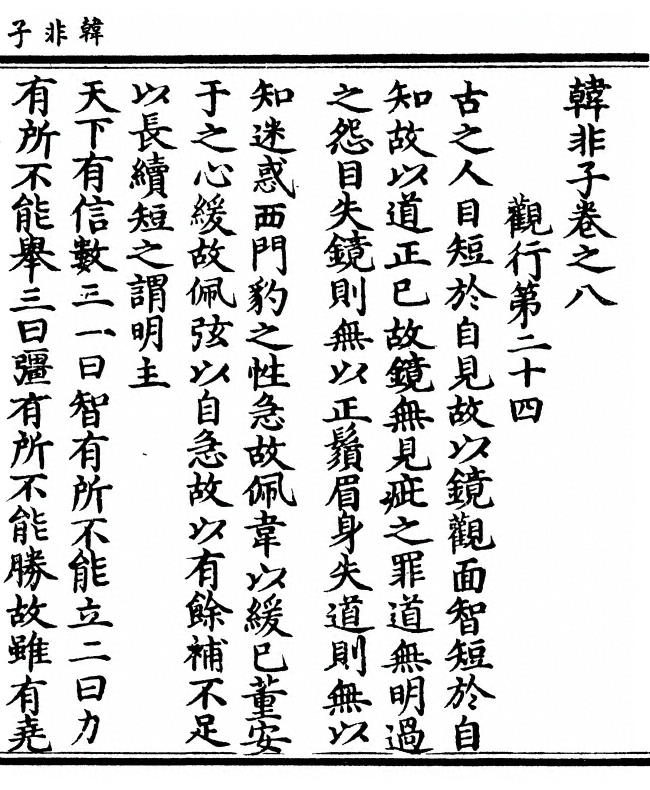 韓非子
韓非子卷之八
觀行第二十四
古之人目短於自見故以鏡觀面智短於自
知故以道正已故鏡無見疵之罪道無明過
之怨目失鏡則無以正鬚眉身失道則無以
知迷惑西門豹之性急故佩韋以緩已董安
于之心緩故佩弦以自急故以有餘補不足
以長續短之謂明主
天下有信數三一曰智有所不能立二曰力
有所不能舉三曰彊有所不能勝故雖有堯